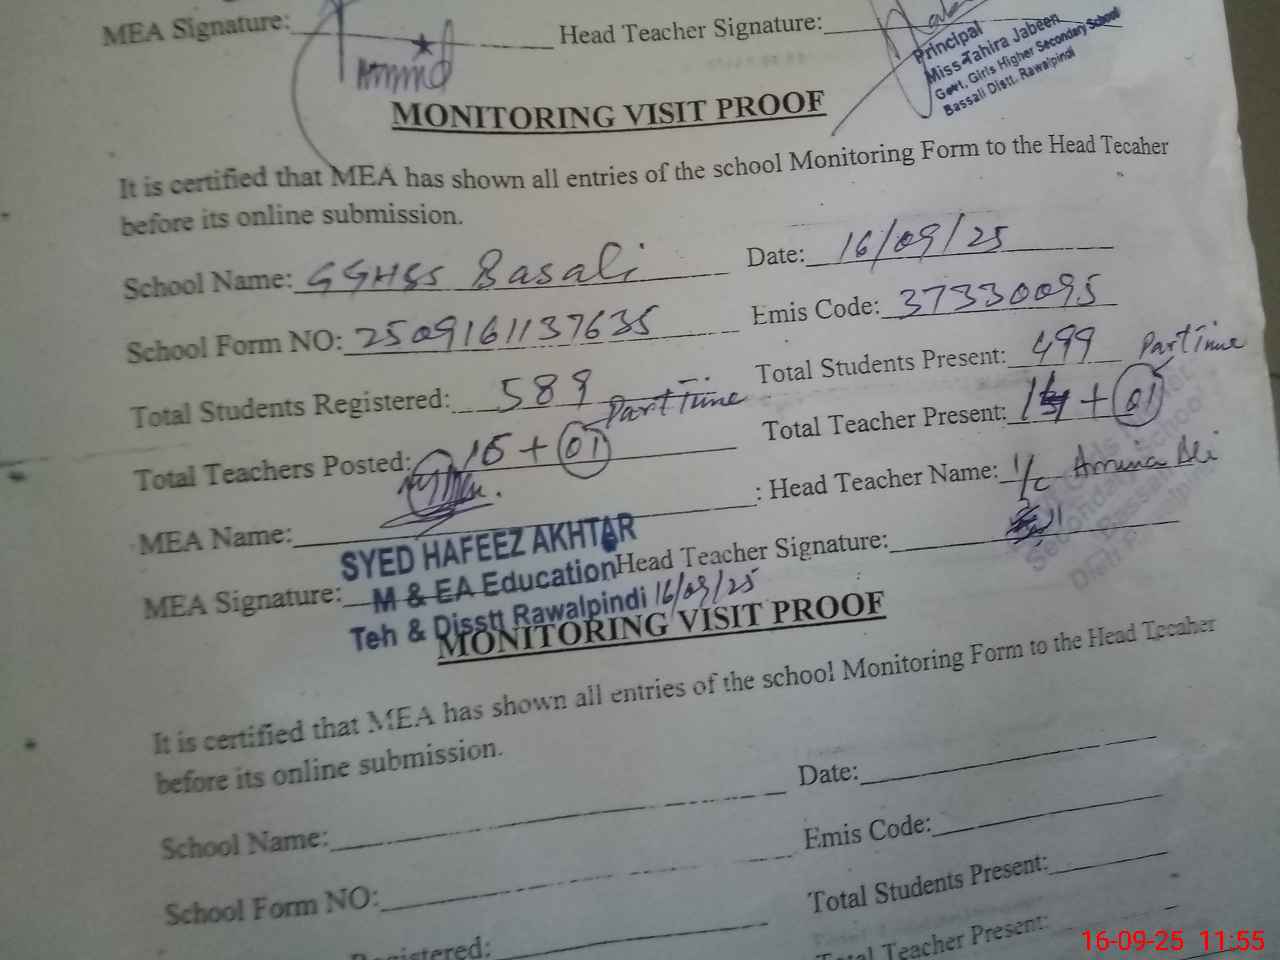 MEA Signature: Head Teacher Signature:
Principal
Miss Tahira Jabeen
Govt. Girls Higher Secondary School
Bassali Distt. Rawalpindi
MONITORING VISIT PROOF
It is certified that MEA has shown all entries of the school Monitoring Form to the Head Tecaher
before its online submission.
School Name: GGHSS Basali Date: 16/09/25
School Form NO: 2509161137635 Emis Code: 37330095
Total Students Registered: 589 Total Students Present: 499
Part Time Part Time
Total Teachers Posted: 15 + 01 Total Teacher Present: + 01
MEA Name: : Head Teacher Name: I/C Amina Ali
SYED HAFEEZ AKHTAR
MEA Signature: M & EA Education Head Teacher Signature:
Teh & Disstt Rawalpindi 16/09/25
MONITORING VISIT PROOF
It is certified that MEA has shown all entries of the school Monitoring Form to the Head Tecaher
before its online submission.
School Name: Date:
School Form NO: Emis Code:
Total Students Present:
Teacher Present:
16-09-25 11:55